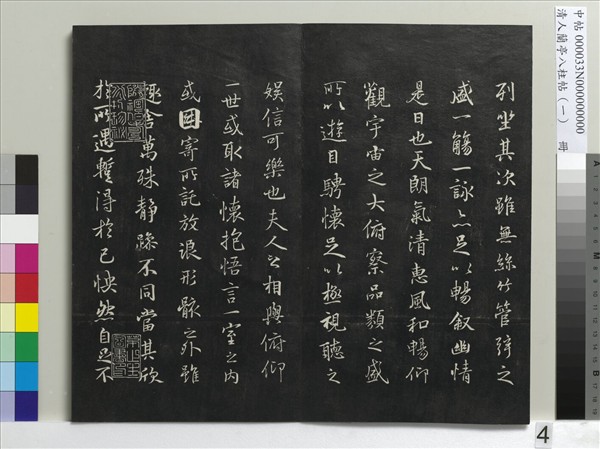 中帖 000033N000000000
清人蘭亭八柱帖（一）　冊
列坐其次雖無絲竹管弦之
盛一觴一詠亦足以暢叙幽情
是日也天朗氣清惠風和暢仰
觀宇宙之大俯察品類之盛
所以遊目騁懷足以極視聽之
娛信可樂也夫人之相與俯仰
一世或取諸懷抱悟言一室之內
或因寄所託放浪形骸之外雖
趣舍萬殊靜躁不同當其欣
於所遇暫得於己怏然自足不
4